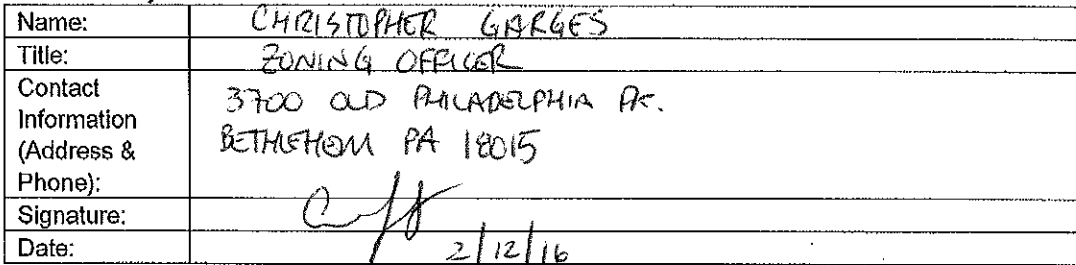 Name: CHRISTOPHER GARGES
Title: ZONING OFFICER
Contact
Information
(Address &
Phone):
3700 OLD PHILADELPHIA PK.
BETHLEHEM PA 18015
Signature:
Date: 2/12/16